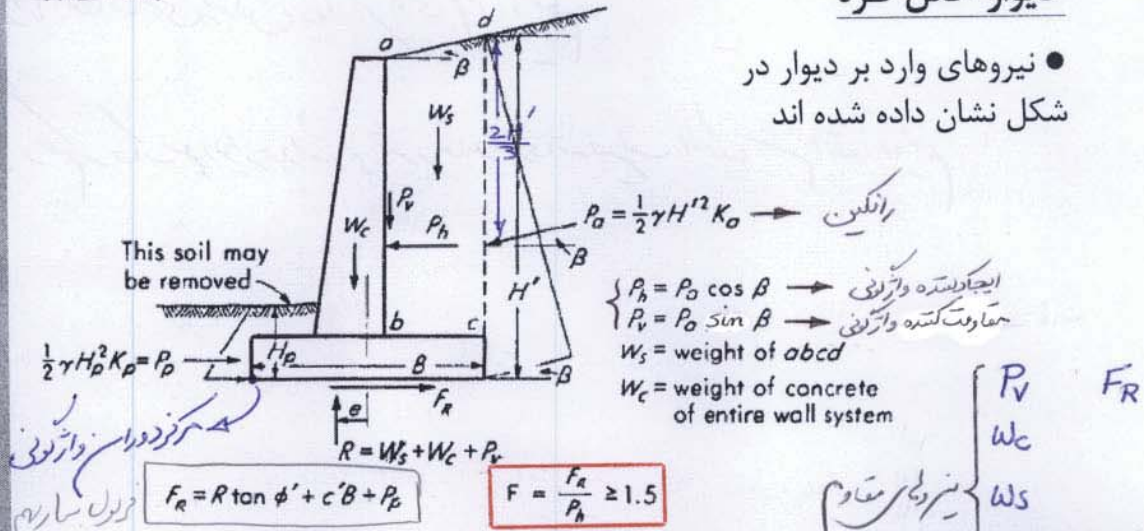 ● نیروهای وارد بر دیوار در
شکل نشان داده شده اند
d
a
β
W_s
2H'/3
P_v
W_c
P_h
P_a = ½ γH'² K_a → رانکین
β
H'
This soil may
be removed
P_h = P_a cos β → ایجادکننده واژگونی
P_v = P_a sin β → مقاومت کننده واژگونی
W_s = weight of abcd
W_c = weight of concrete
of entire wall system
b
c
½ γH_p² K_p = P_p
H_p
B
β
F_R
e
R = W_s + W_c + P_v
مرکز دوران واژگونی
F_R = R tan φ' + c'B + P_p
F = F_R / P_h ≥ 1.5
نیروهای مقاوم
P_v
W_c
W_s
F_R